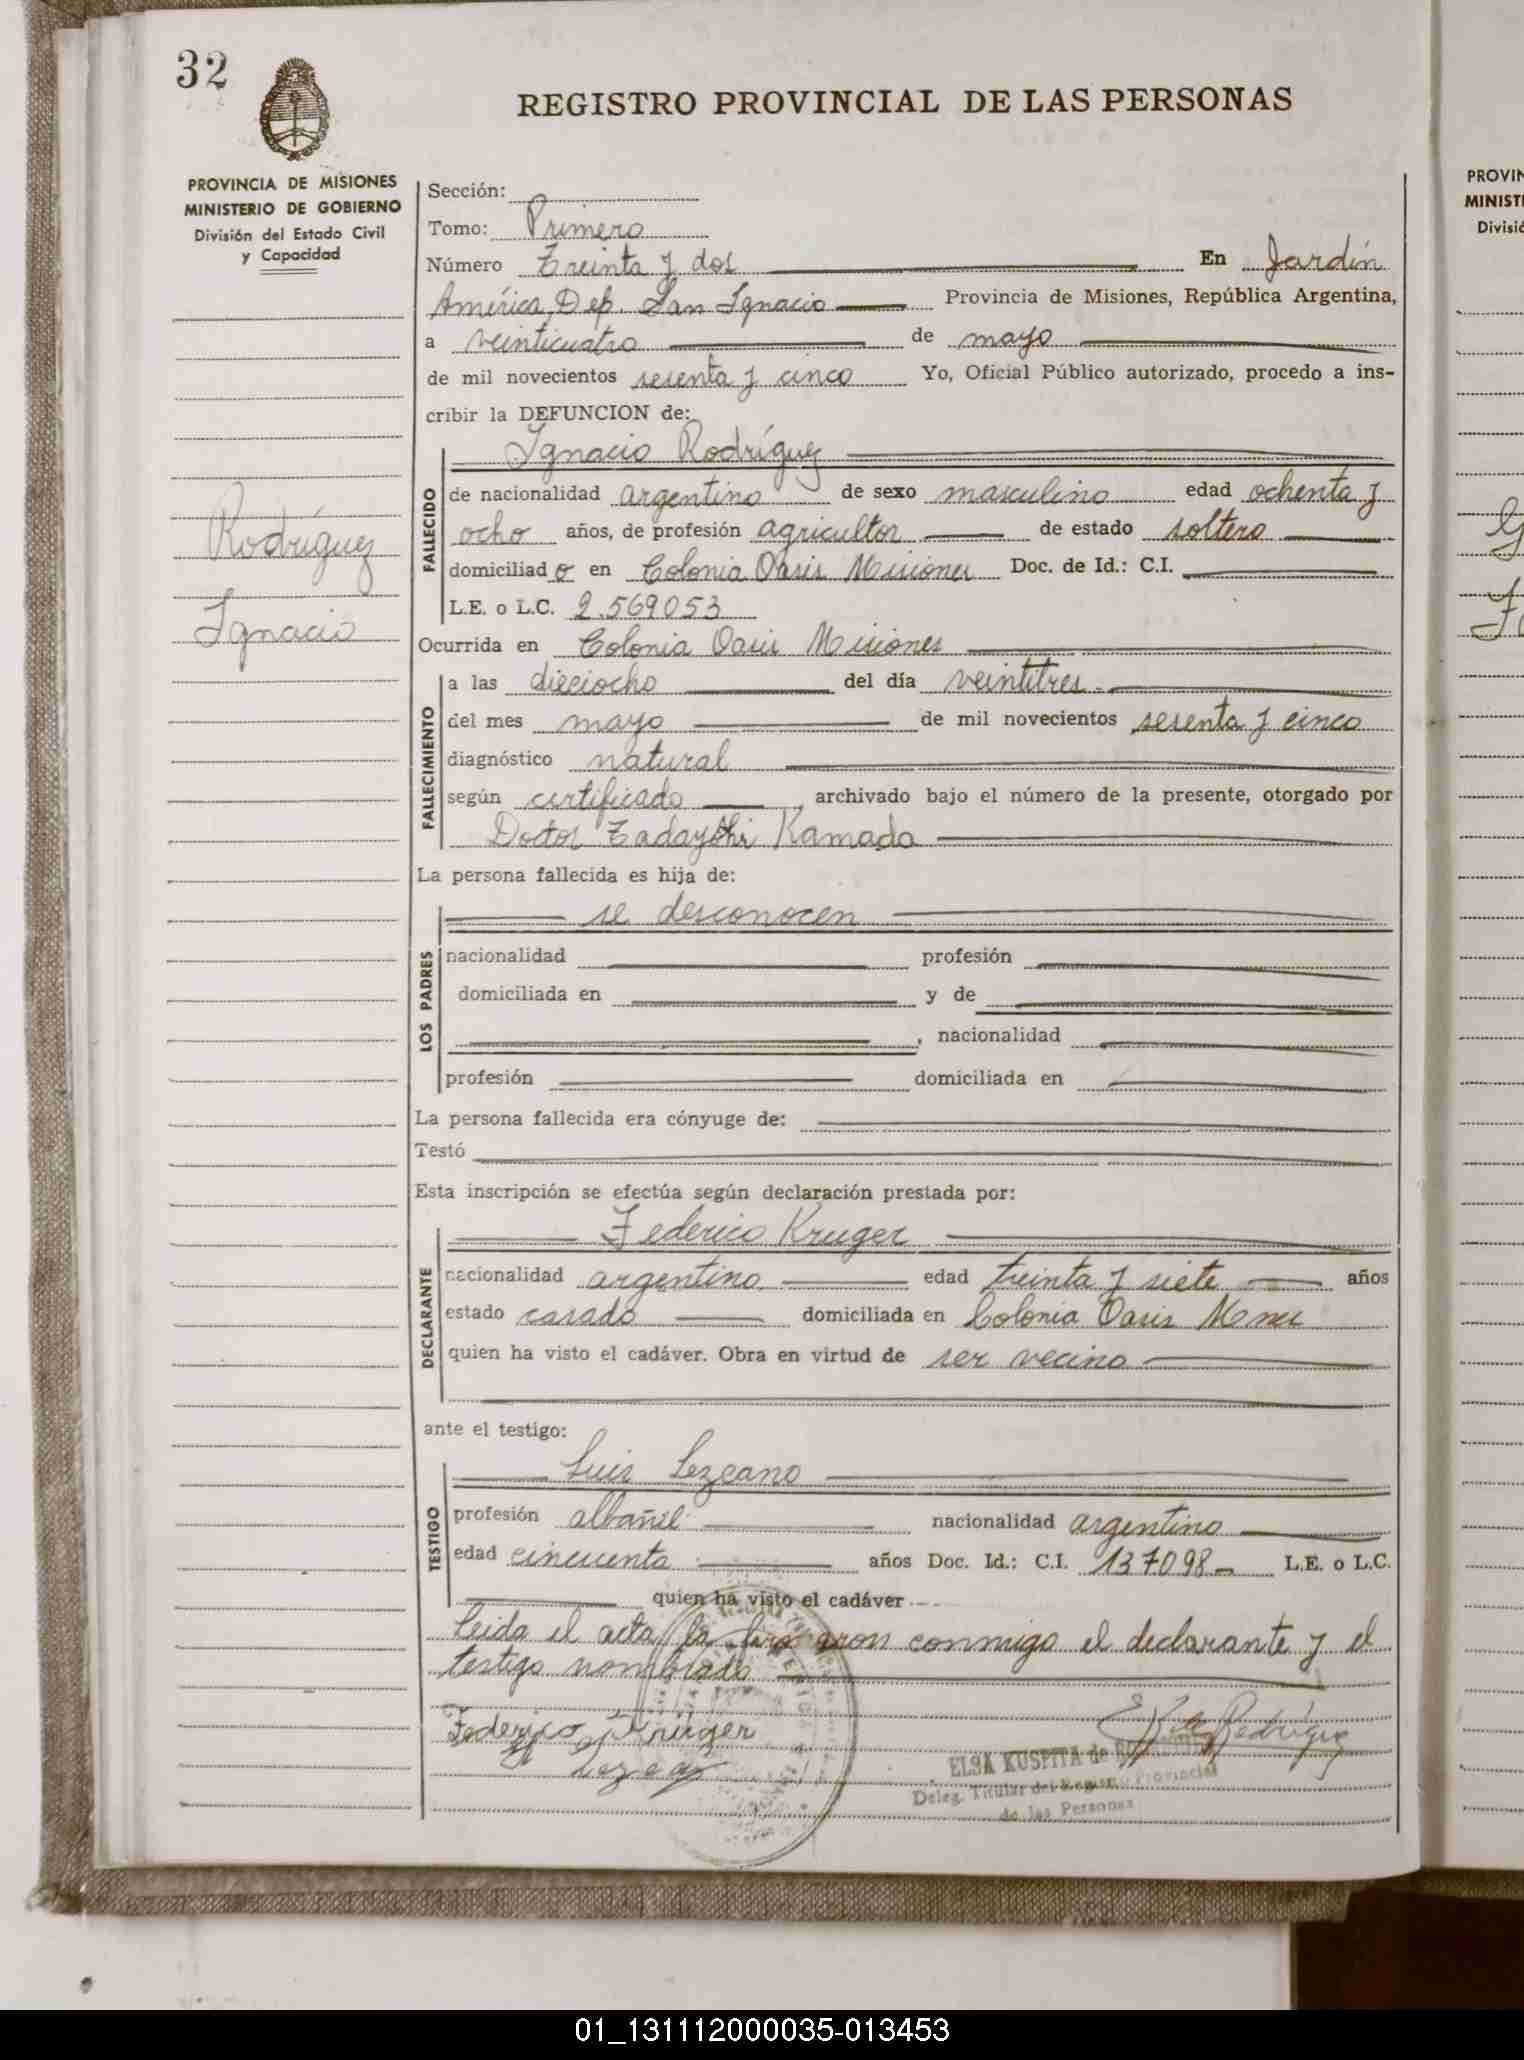 32
REGISTRO PROVINCIAL DE LAS PERSONAS
PROVINCIA DE MISIONES
MINISTERIO DE GOBIERNO
División del Estado Civil
y Capacidad
Rodríguez
Ignacio
Sección:
Tomo: Primero
Número Treinta y dos En Jardín
América, Dep. San Ignacio Provincia de Misiones, República Argentina,
a veinticuatro de mayo
de mil novecientos sesenta y cinco Yo, Oficial Público autorizado, procedo a ins-
cribir la DEFUNCION de:
Ignacio Rodríguez
FALLECIDO
de nacionalidad argentino de sexo masculino edad ochenta y
ocho años, de profesión agricultor de estado soltero
domiciliado en Colonia Oasis Misiones Doc. de Id.: C.I.
L.E. o L.C. 2.569053
Ocurrida en Colonia Oasis Misiones
FALLECIMIENTO
a las dieciocho del día veintitres
del mes mayo de mil novecientos sesenta y cinco
diagnóstico natural
según certificado, archivado bajo el número de la presente, otorgado por
Doctor Kamada
La persona fallecida es hija de:
se desconocen
LOS PADRES
nacionalidad profesión
domiciliada en y de
, nacionalidad
profesión domiciliada en
La persona fallecida era cónyuge de:
Testó
Esta inscripción se efectúa según declaración prestada por:
Federico Kruger
DECLARANTE
nacionalidad argentino edad treinta y siete años
estado casado domiciliada en Colonia Oasis Mnes
quien ha visto el cadáver. Obra en virtud de ser vecino
ante el testigo:
Luis Lezcano
TESTIGO
profesión albañil nacionalidad argentino
edad cincuenta años Doc. Id.: C.I. 137098 L.E. o L.C.
quien ha visto el cadáver
Leida el acta la firmaron conmigo el declarante y el
testigo nombrado
Federico Krüger
ELSA KUSPITA de
Deleg. Titular del Registro Provincial
de las Personas
PROVIN
MINIST
Divisió
01_131112000035-013453